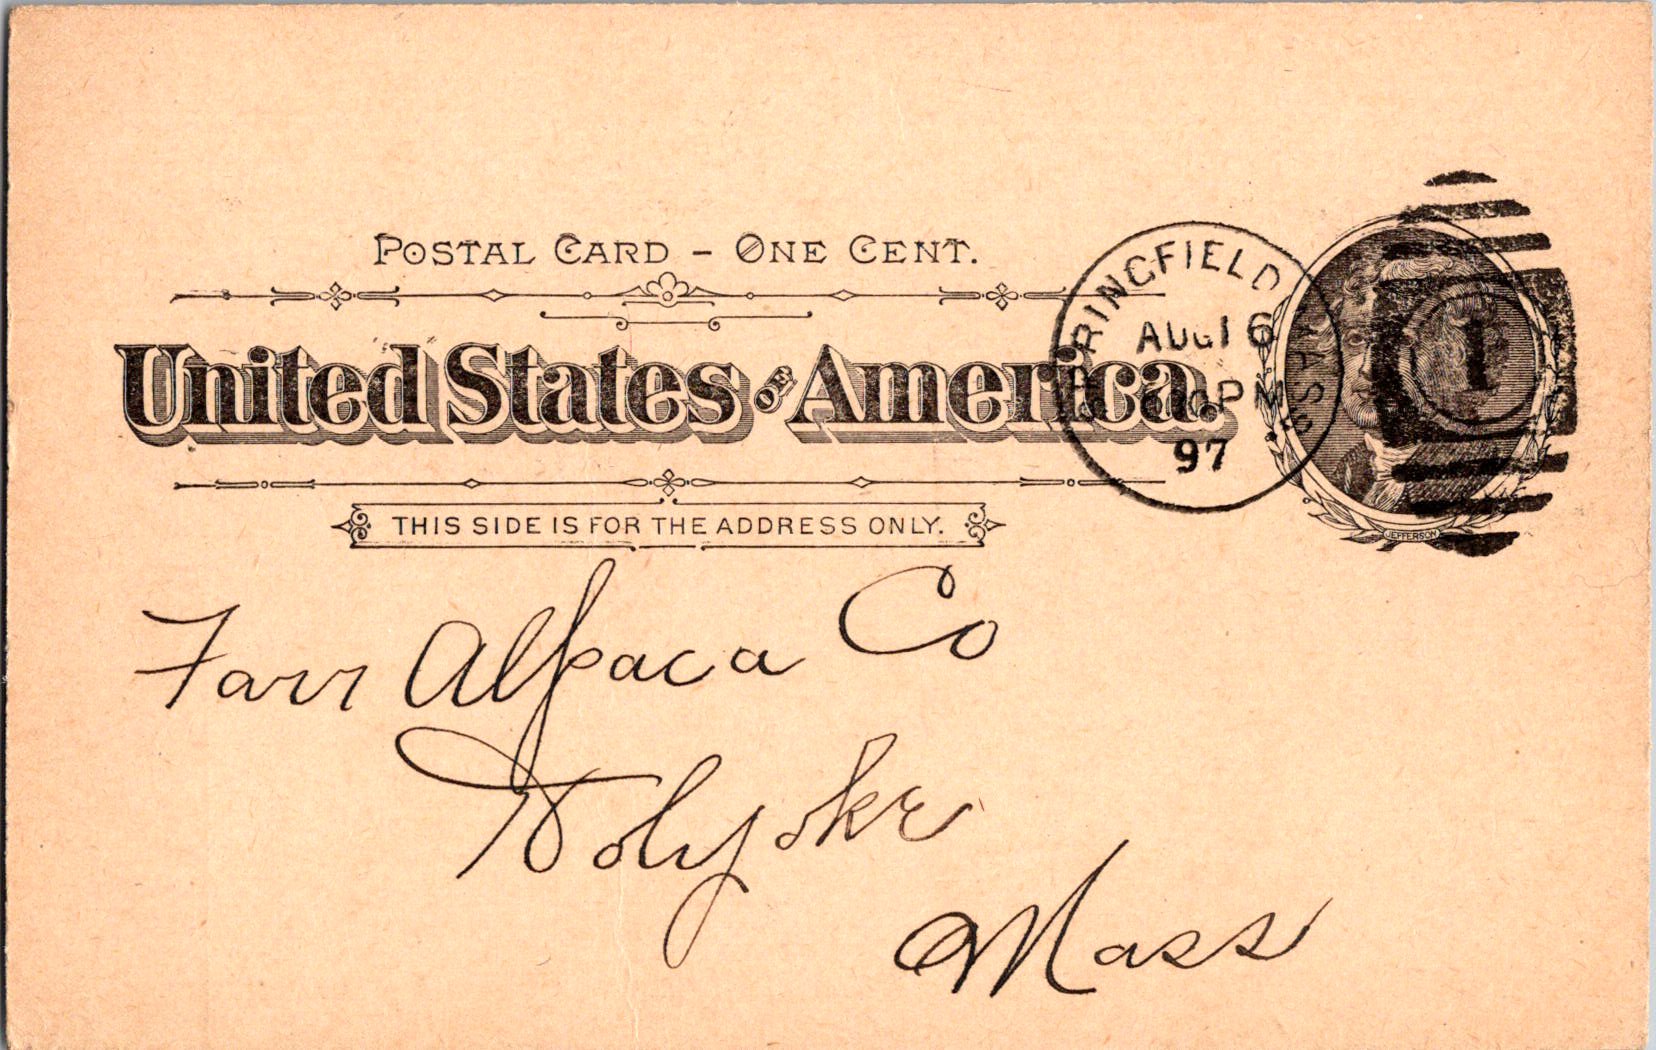 POSTAL CARD – ONE CENT.
United States OF America.
THIS SIDE IS FOR THE ADDRESS ONLY.
SPRINGFIELD MASS.
AUG 16
PM
97
1
JEFFERSON
Farr Alpaca Co
Holyoke
Mass